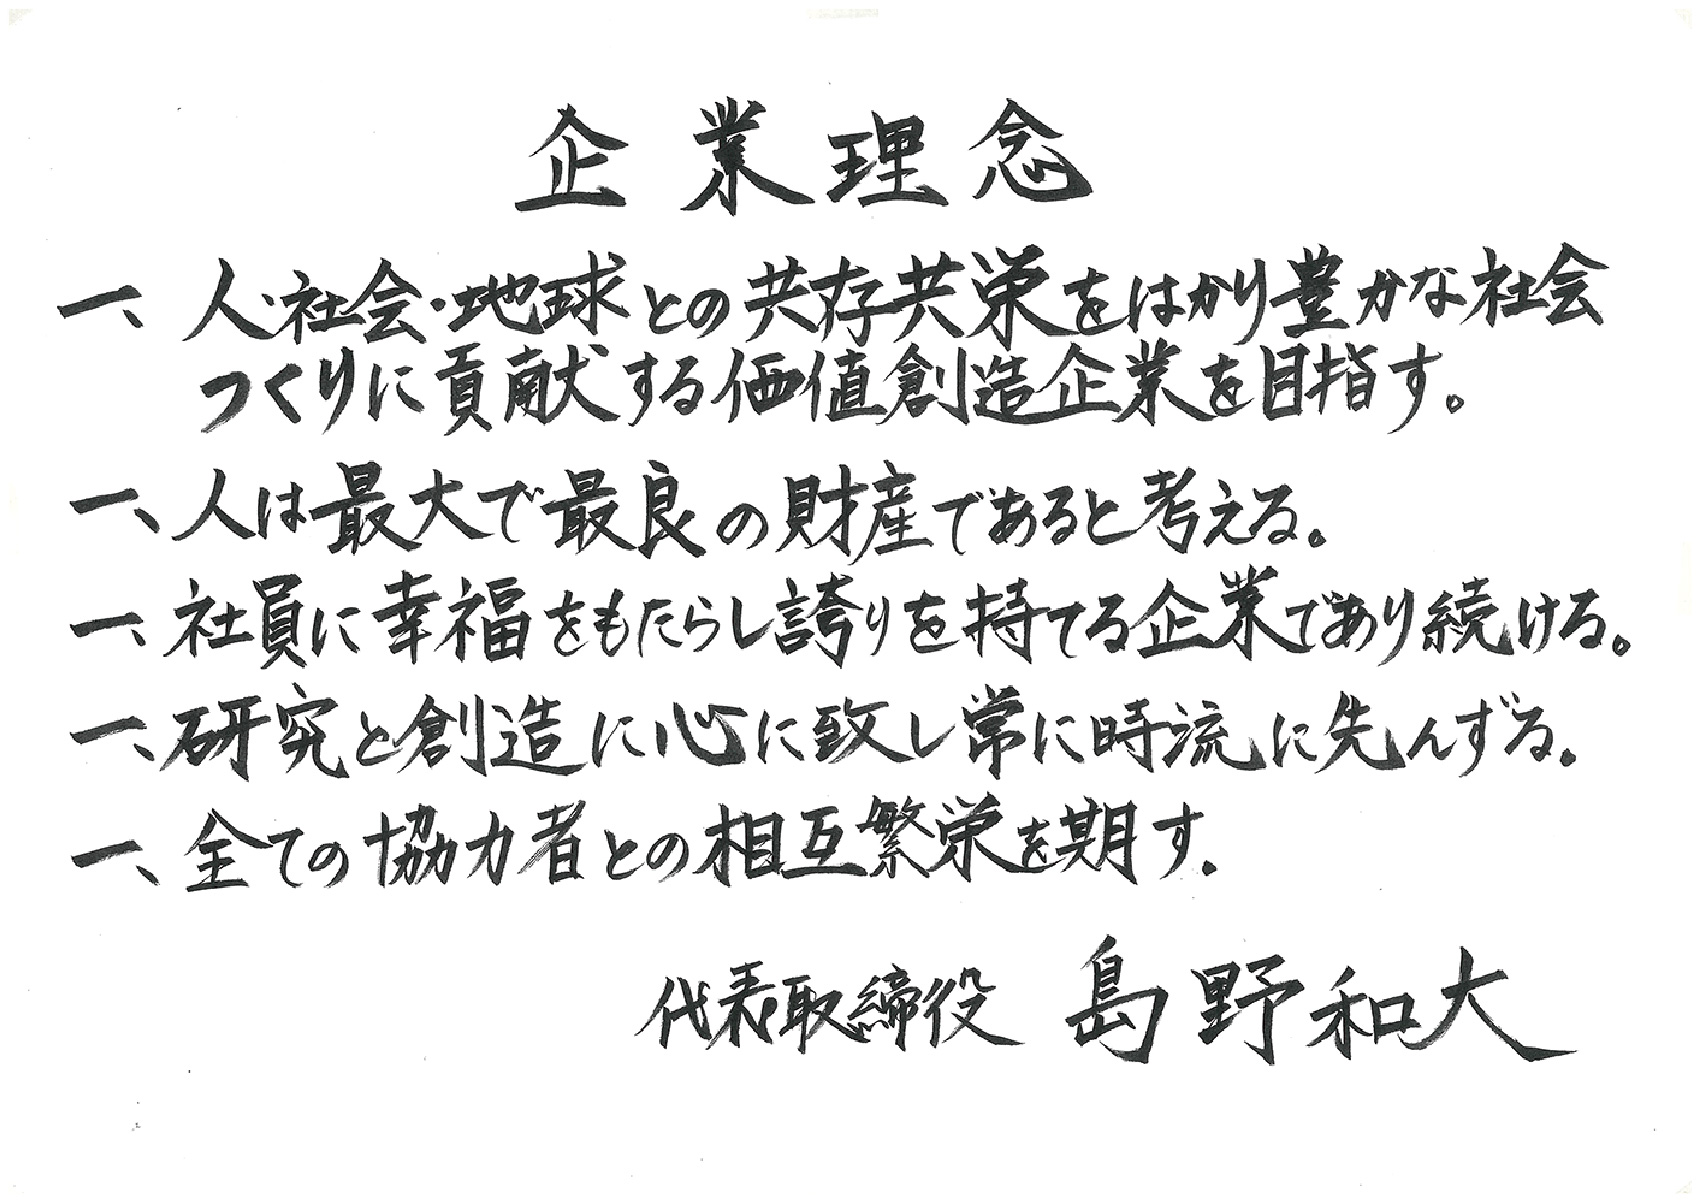 企業理念
一、人・社会・地球との共存共栄をはかり豊かな社会
つくりに貢献する価値創造企業を目指す。
一、人は最大で最良の財産であると考える。
一、社員に幸福をもたらし誇りを持てる企業であり続ける。
一、研究と創造に心に致し常に時流に先んずる。
一、全ての協力者との相互繁栄を期す。
代表取締役 島野和大